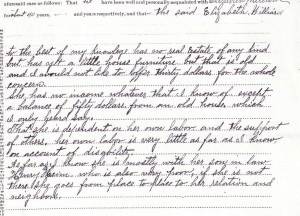 aforesaid case as follows: That we have been well and personally acquainted with
for about 40 years, and years respectively, and that the said Elizabeth Wilkins
to the best of my knowlege has no real Estate of any kind
but has got a little house furniture but that is old
and I would not like to offer thirty dollars for the whole
concern.
She has no income whatever that I know of except
a balance of fifty dollars from an old house which
is only heard say.
That she is dependent on her own labor and the support
of others, her own labor is very little as far as I know
on account of disability.
As far as I know she is mostly with her son in law
Henry who is also very poor, if she is not
there she goes from place to place to her relation and
neighbors.